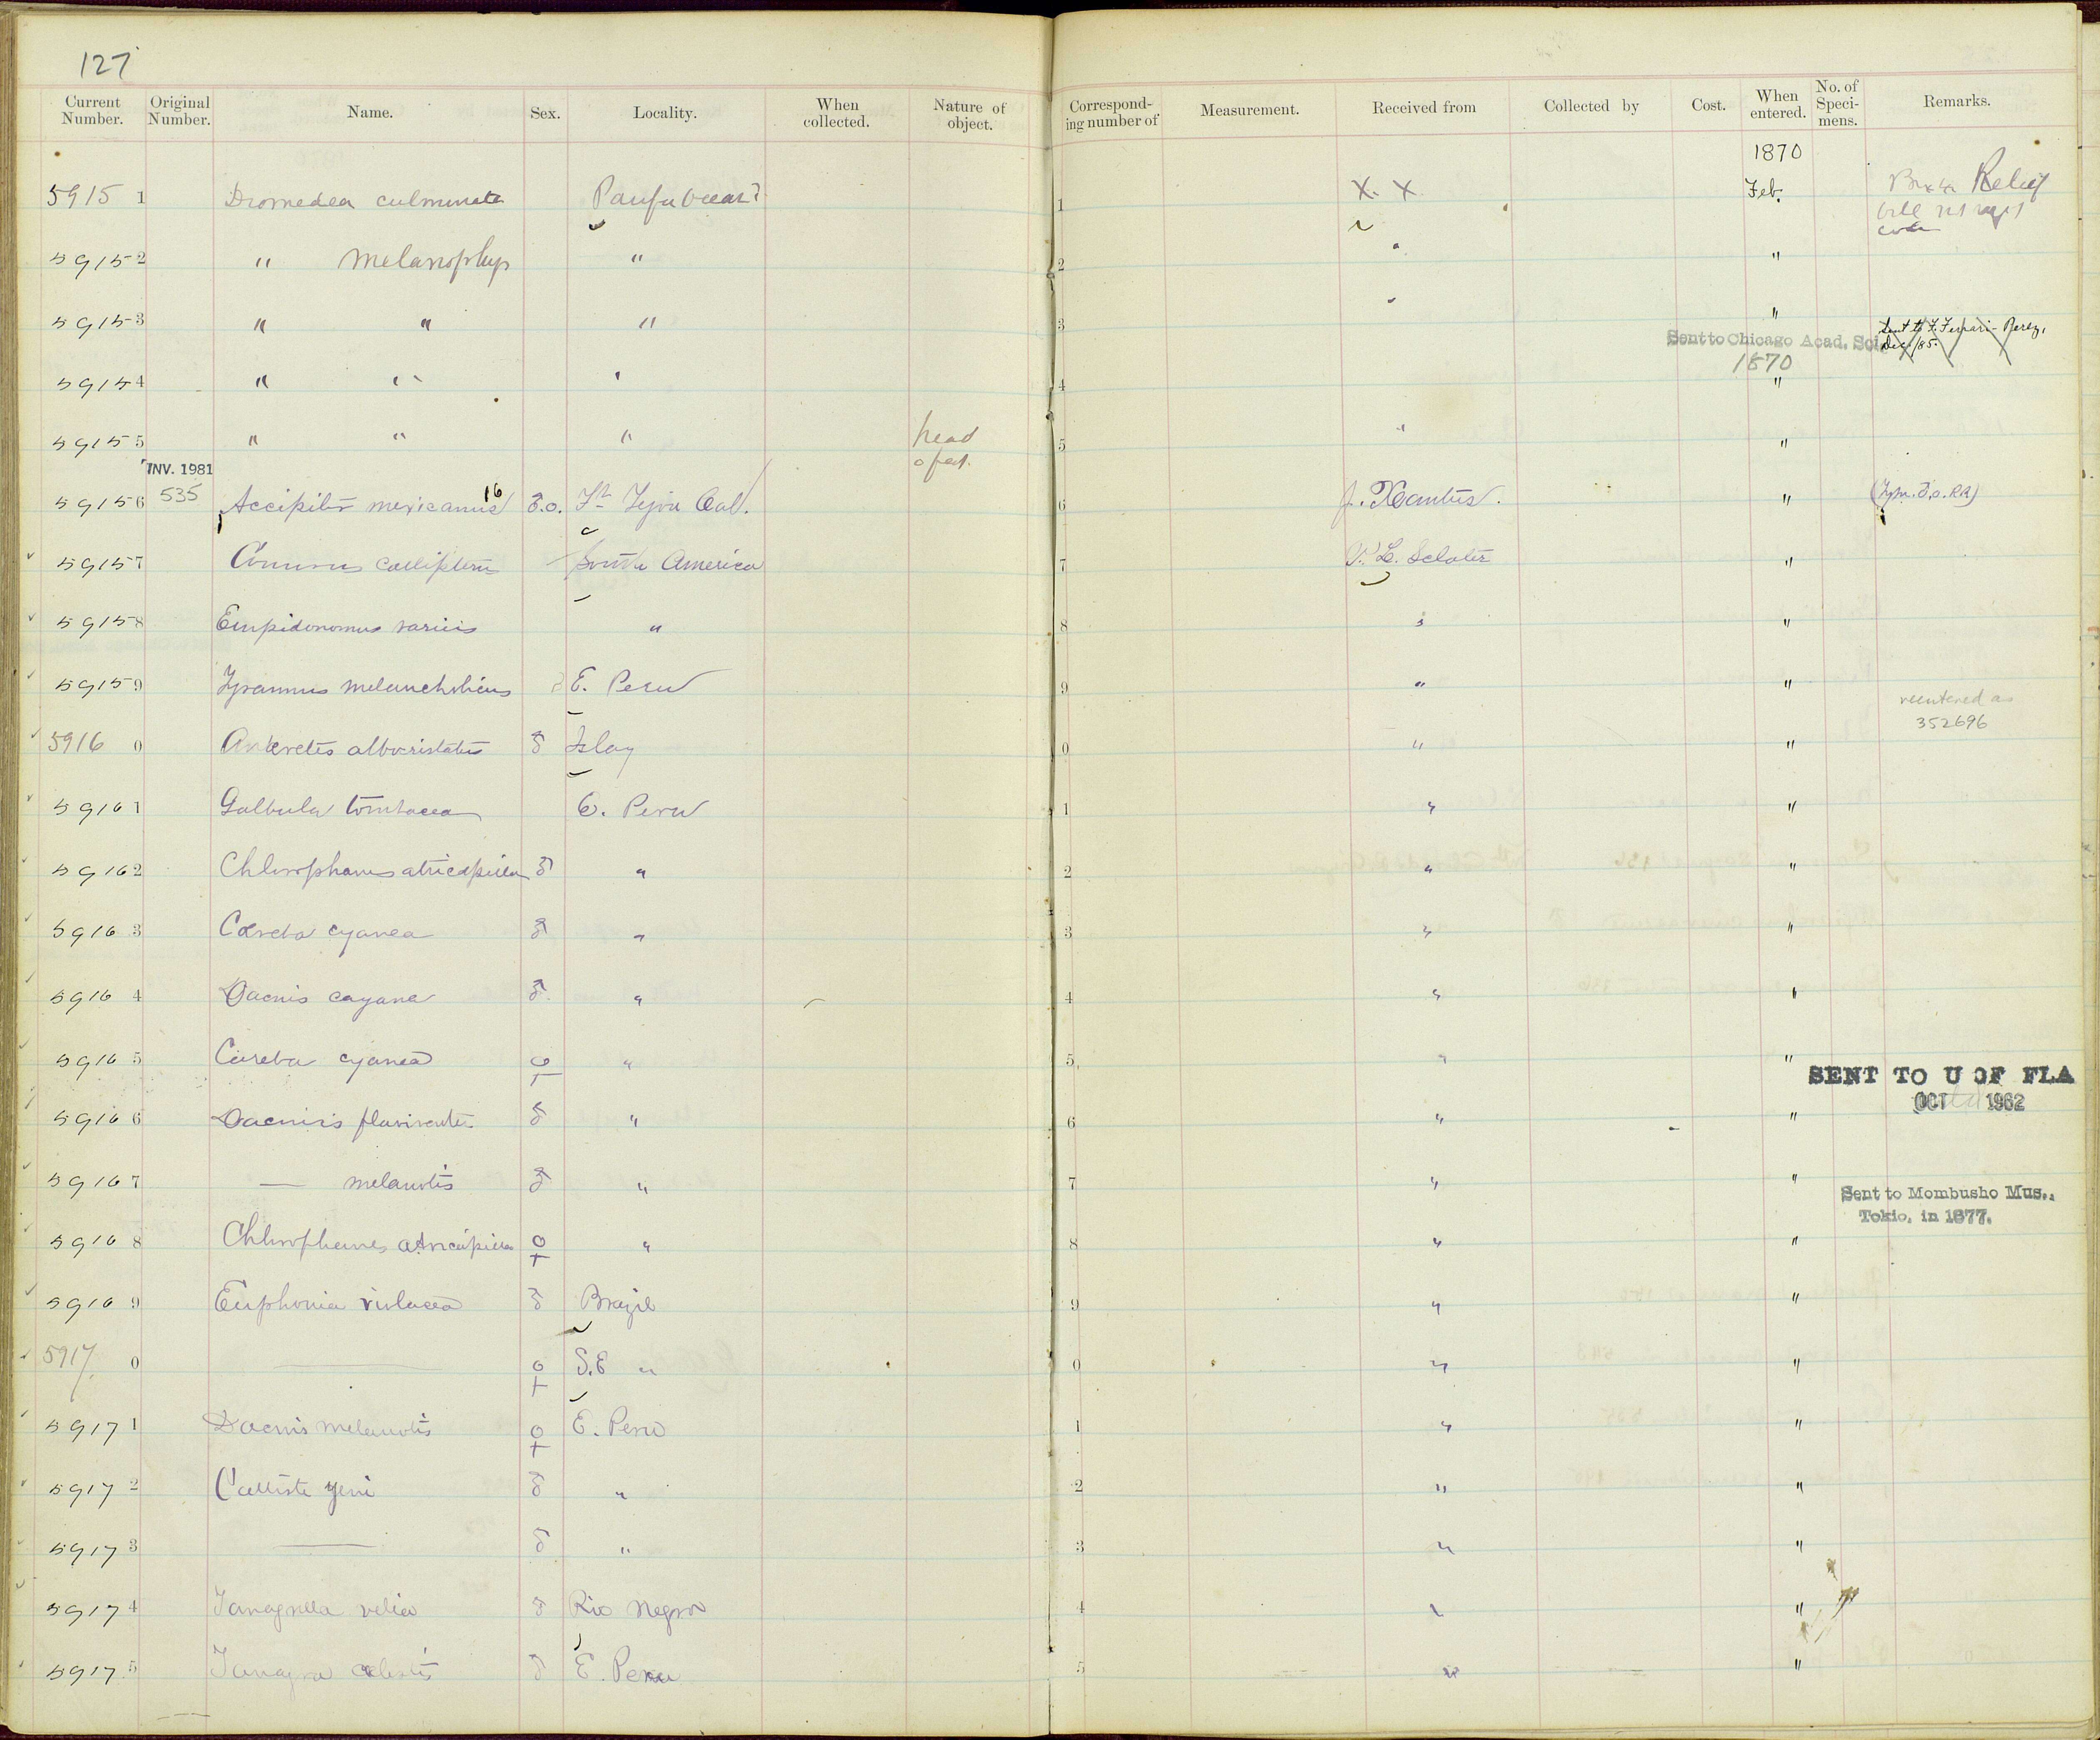 127
Current Number. Original Number. Name. Sex. Locality. When collected. Nature of object. Corresponding number of Measurement. Received from Collected by Cost. When entered. No. of Specimens. Remarks.
1870
5915 1 Diomedea culminata 1 X. X Feb. Relief
bill
5915 2 " melanophrys " 2 " "
5915 3 " " " 3 " " Sent to F. Ferrari-Perez,
Dec. /85.
Sent to Chicago Acad. Sci.
1870
5915 4 " " " 4 "
5915 5 " " " head 5 " "
o feet.
INV. 1981
5915 6 535 Accipiter mexicanus 16 ♂.o. Ft Tejon Cal. 6 J. Xantus. "
5915 7 Conurus South America 7 P. L. Sclater "
5915 8 Empidonomus varius " 8 " "
5915 9 Tyrannus melancholicus E. Peru 9 " "
reentered as
352696
5916 0 Anæretes albocristatus ♂ Islay 0 " "
5916 1 Galbula tombacea E. Peru 1 " "
5916 2 Chlorophanes atricapilla ♂ " 2 " "
5916 3 Cœreba cyanea ♂ " 3 " "
5916 4 Dacnis cayana ♂ " 4 " "
5916 5 Cœreba cyanea ♀ " 5 " "
SENT TO U OF FLA
OCT 1962
5916 6 Dacnis flaviventer ♂ " 6 " "
5916 7 — melanotis ♂ " 7 " "
Sent to Mombusho Mus.,
Tokio, in 1877.
5916 8 Chlorophanes atricapilla ♀ " 8 " "
5916 9 Euphonia violacea ♂ Brazil 9 " "
5917 0 — ♀ S.E " 0 " "
5917 1 Dacnis melanotis ♀ E. Peru 1 " "
5917 2 Calliste yeni ♂ " 2 " "
5917 3 — ♂ " 3 " "
5917 4 Tanagrella velia ♂ Rio Negro 4 " "
5917 5 Tanagra cœlestis ♂ E. Peru 5 " "